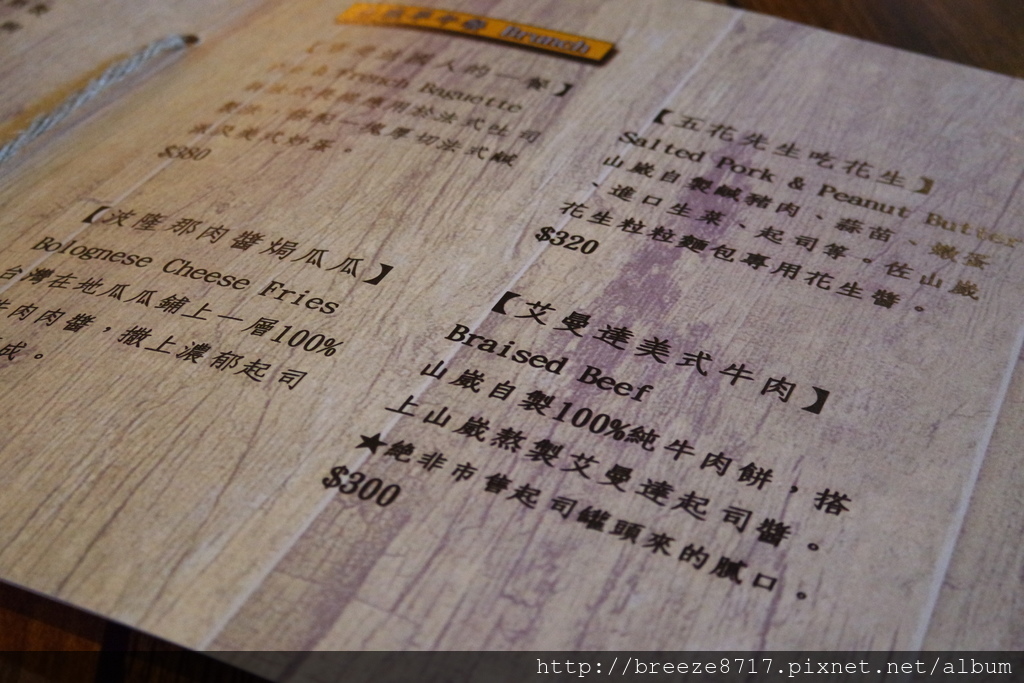 Brunch
French Baguette
$380
【五花先生吃花生】
Salted Pork & Peanut Butter
山崴自製鹹豬肉、蒜苗、嫩蛋
、進口生菜、起司等。佐山崴
花生粒粒麵包專用花生醬。
$320
【波隆那肉醬焗瓜瓜】
Bolognese Cheese Fries
台灣在地瓜瓜鋪上一層100%
牛肉肉醬，撒上濃郁起司
成。
【艾曼達美式牛肉】
Braised Beef
山崴自製100%純牛肉餅，搭
上山崴熬製艾曼達起司醬。
★絕非市售起司罐頭來的膩口。
$300
http://breeze8717.pixnet.net/album